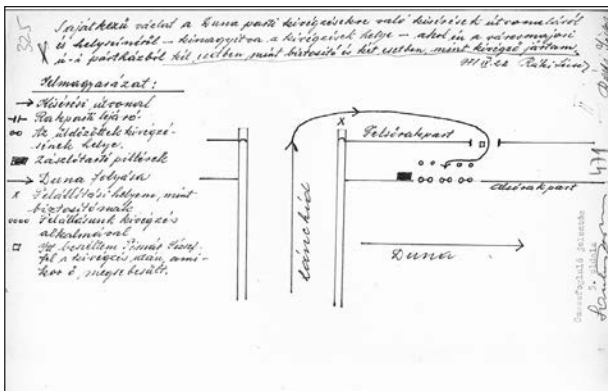 325
Sajátkezű vázlat a Duna parti kivégzésekre való kisérések útvonaláról
és helyszinéről – kinagyitva a kivégzések helye – ahol én a városmajori
pártházból két esetben mint biztositó és két esetben, mint kivégző jártam.
971 II. 22
Jelmagyarázat:
Kisérési útvonal
Rakparti lejáró
Az üldözöttek kivégzé-
sének helye.
Zászlótartó pillérek
Duna folyása
x Felállitási helyem, mint
biztositónak
Felállásunk kivégzés
alkalmával
Itt beszéltem
fel a kivégzés után, ami-
kor ő, megsebesült.
x
Felsőrakpart
Alsórakpart
Lánchid
Duna
Összefoglaló jelentés
5. oldala
471